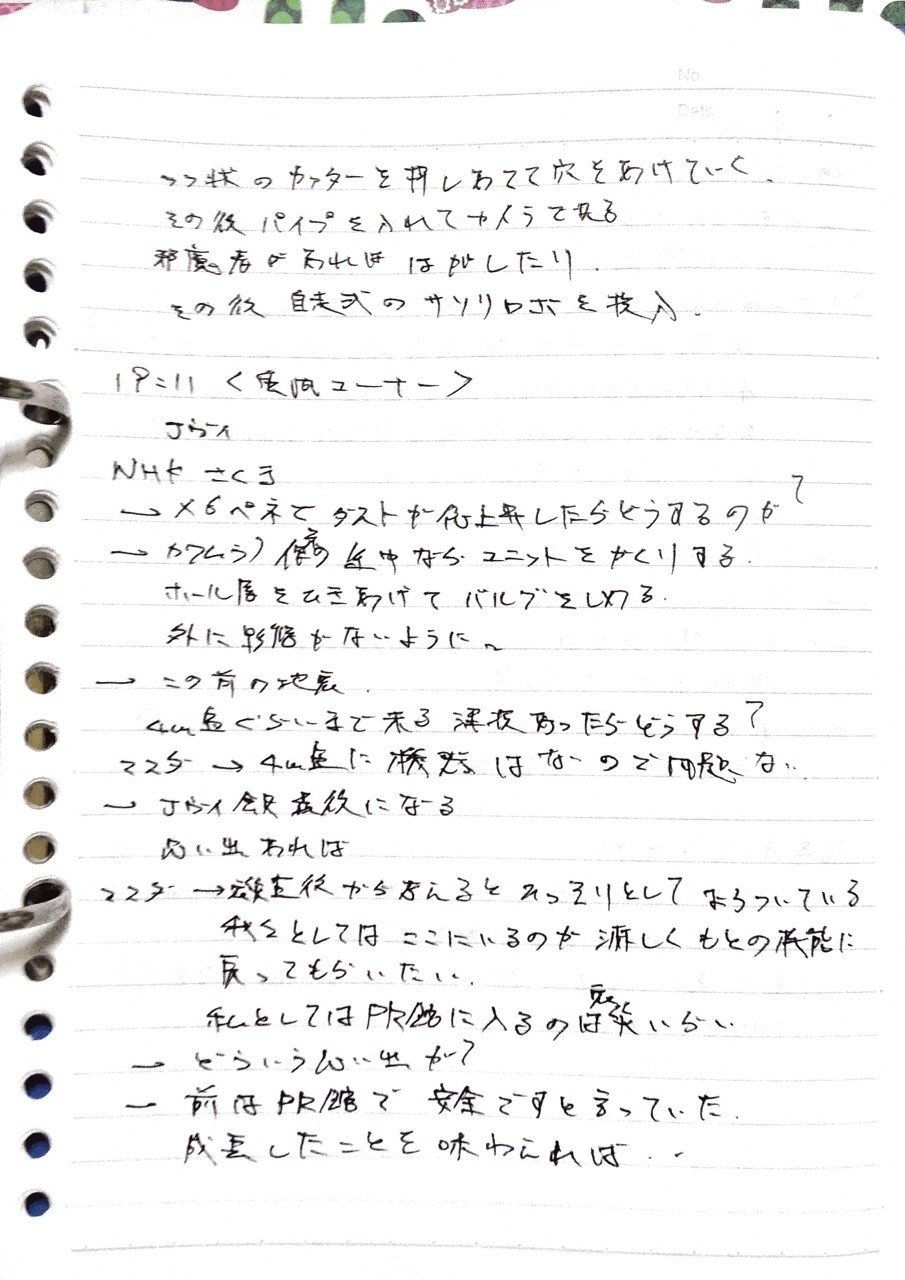 No.
Date
状のカッターを押しあてて穴をあけていく.
その後パイプを入れてカメラで見る
邪魔者があれば はがしたり.
その後 自走式のサソリロボを投入.
19:11 <質問コーナー>
Jヴィ
NHK さくま
→ X6ペネで ダストが 上昇したらどうするのか?
→ 途中なら ユニットをかくりする.
をひきあげて バルブをしめる.
外に影響がないように。
→ この前の地震.
4m盤ぐらいまで来る 津波あったらどうする?
マスダ → 4m盤に機器はないので問題ない.
→ Jヴィ 最後になる
思い出あれば
マスダ → から考えると としている
としてはここにいるのが 淋しくもとの機能に
戻ってもらいたい.
私としてはPR館に入るのは
→ どういう思い出か?
→ 前はPR館で 安全ですと言っていた.
成長したことを味わえれば..